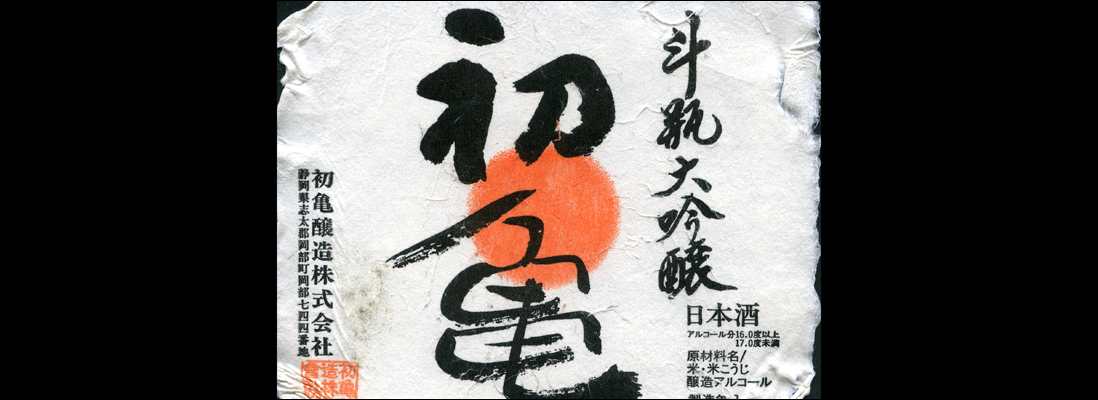 斗瓶大吟醸
初亀
日本酒
アルコール分16.0度以上
17.0度未満
原材料名/
米・米こうじ
醸造アルコール
初亀醸造株式会社
静岡県志太郡岡部町岡部七四四番地